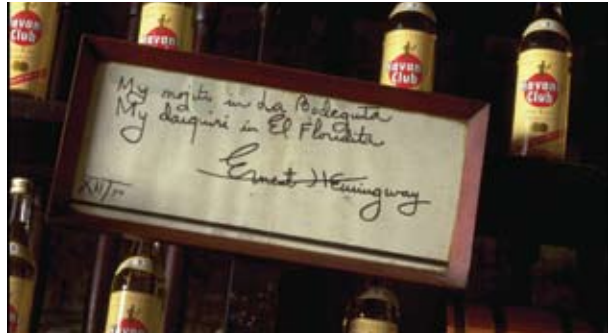 Havana
Club
Havana
Club
Havana
Club
My mojito in La Bodeguita
My daiquiri in El Floridita
Ernest Hemingway